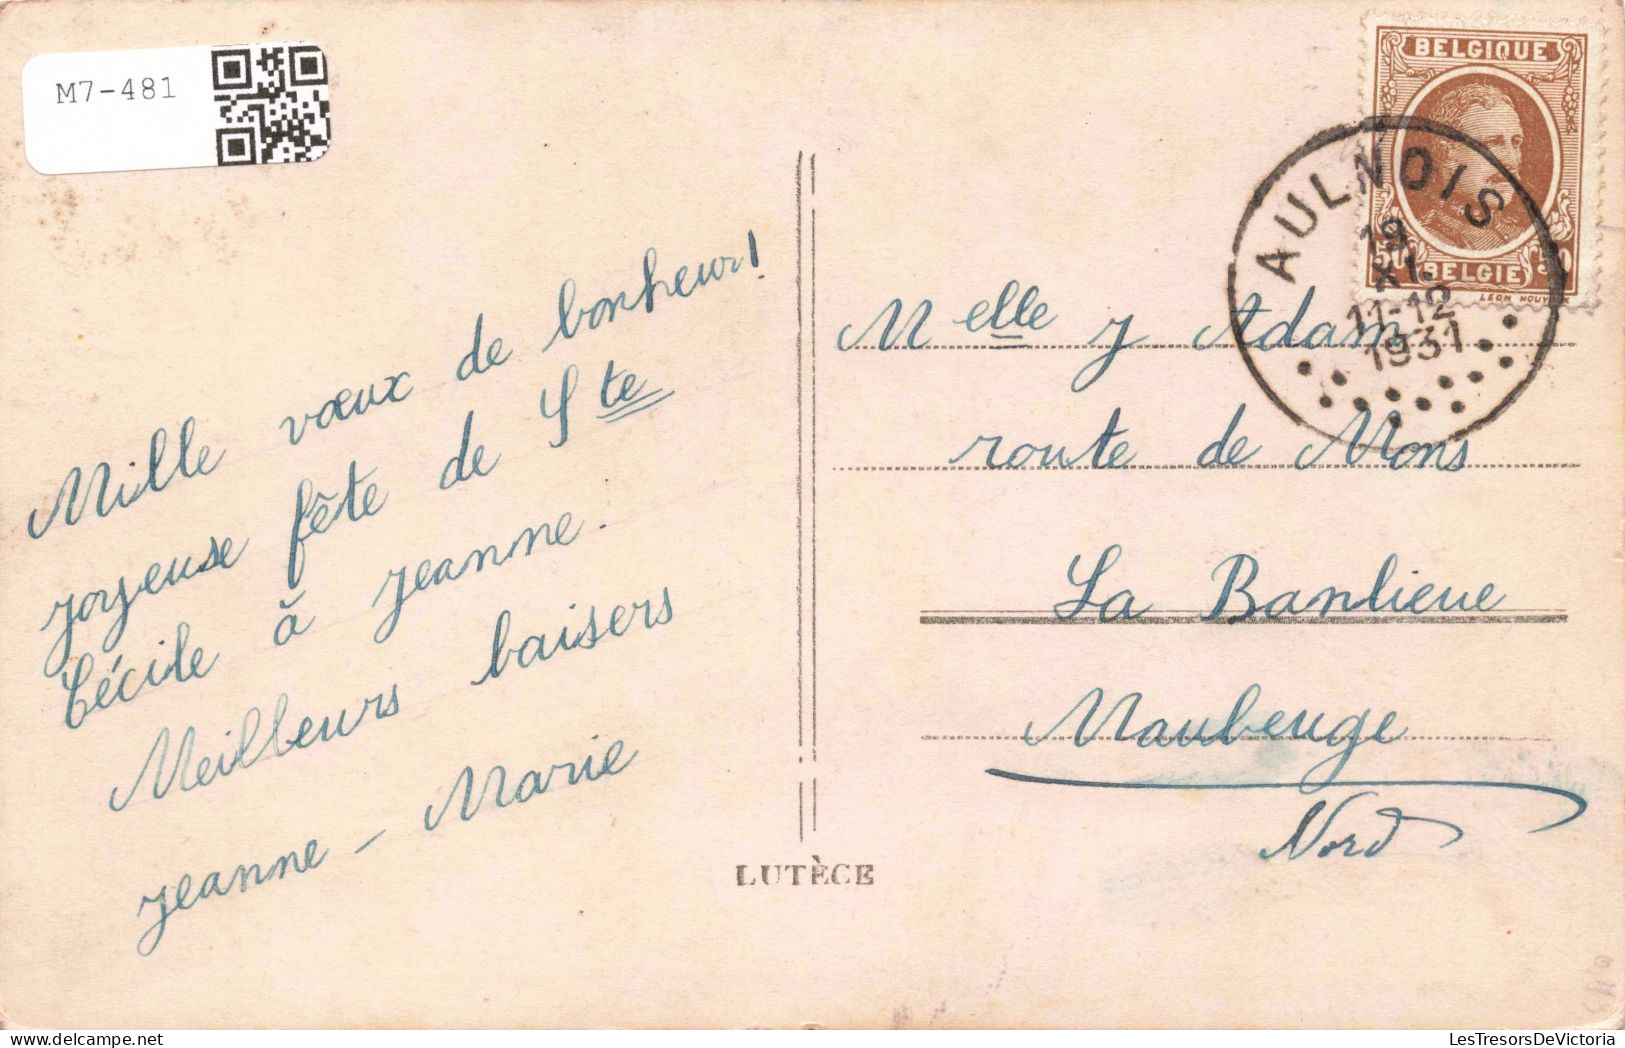 M7-481
Mille vœux de bonheur!
joyeuse fête de Ste
Cécile à jeanne.
Meilleurs baisers
jeanne - Marie
LUTÈCE
BELGIQUE
50 BELGIE 50
AULNOIS
19
XI
11-12
1931
Melle J Adam
route de Mons
La Banlieue
Maubeuge
Nord
LesTresorsDeVictoria